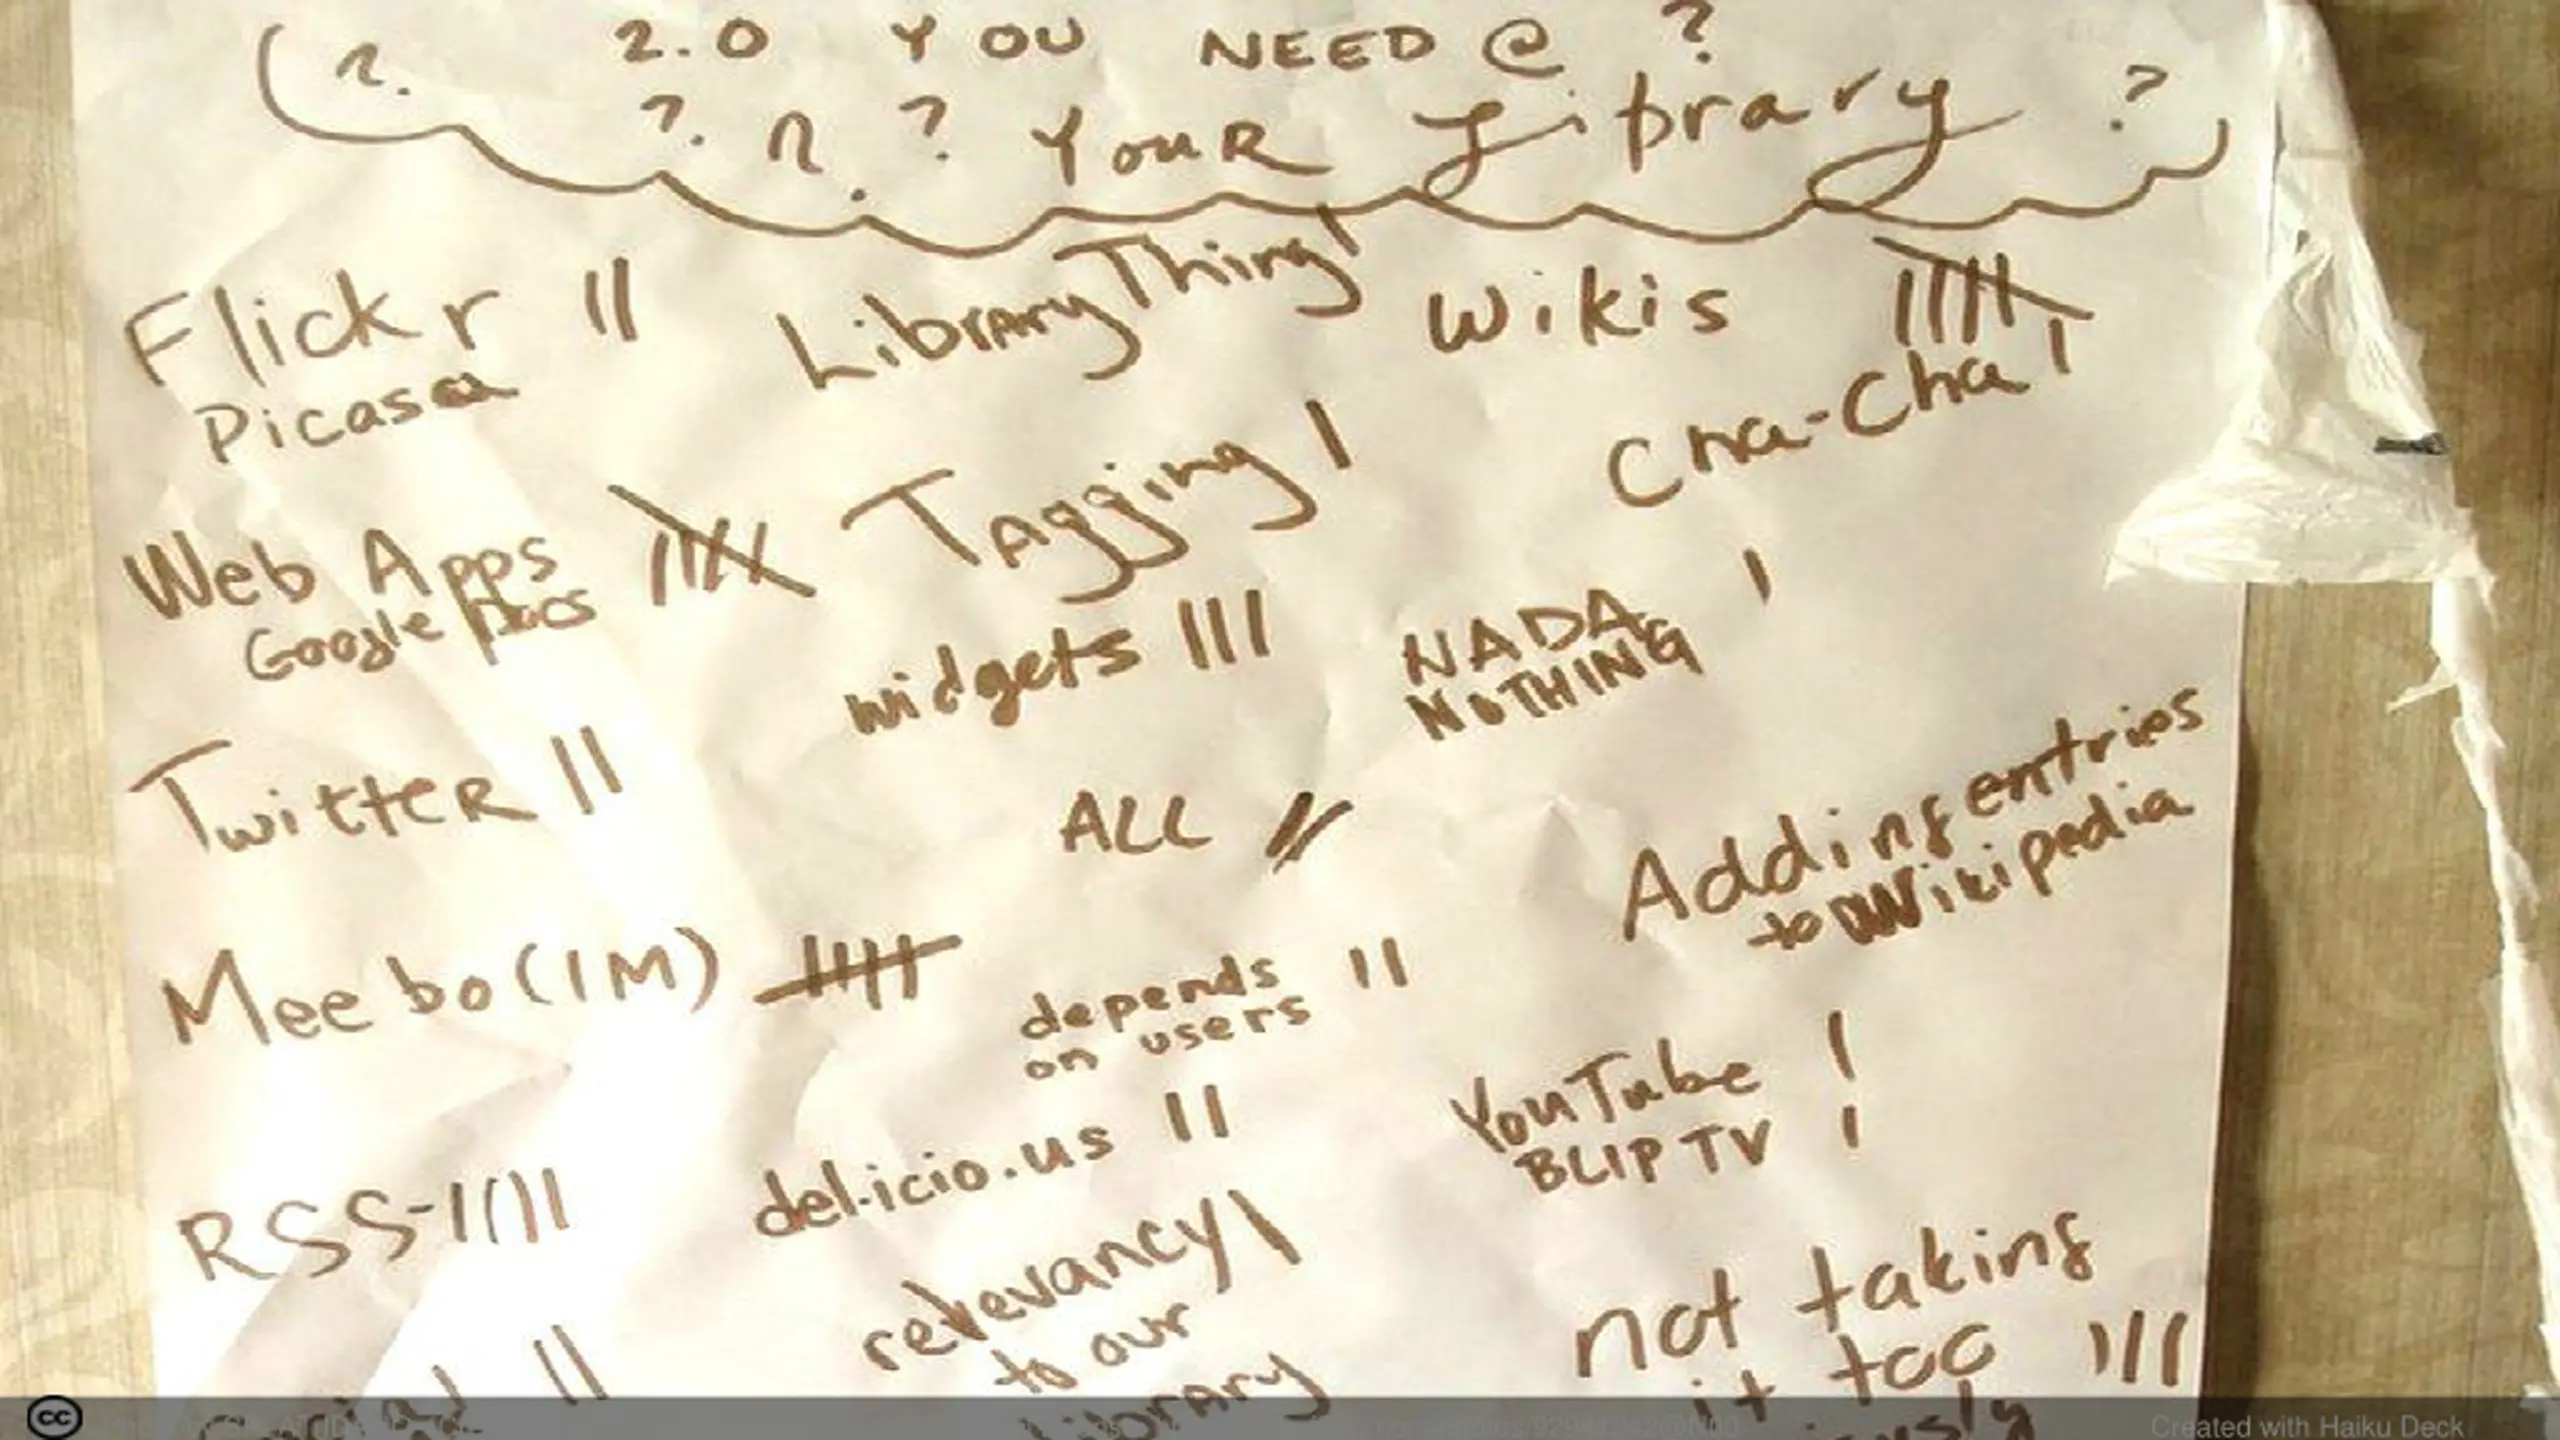 ?. 2.0 YOU NEED @ ?
?. ? ? YOUR Library ?
Flickr ||
Picasa
LibraryThing |
Wikis ||||
Cha-Cha |
Web Apps ||||
Google Docs
Tagging |
widgets |||
NADA |
NOTHING
Twitter ||
ALL ||
Adding entries
to Wikipedia
Meebo (IM) ||||
depends ||
on users
del.icio.us ||
YouTube |
BLIP TV |
RSS-||||
relevancy |
to our
library
not taking
it too |||
Social ||
cc
Created with Haiku Deck